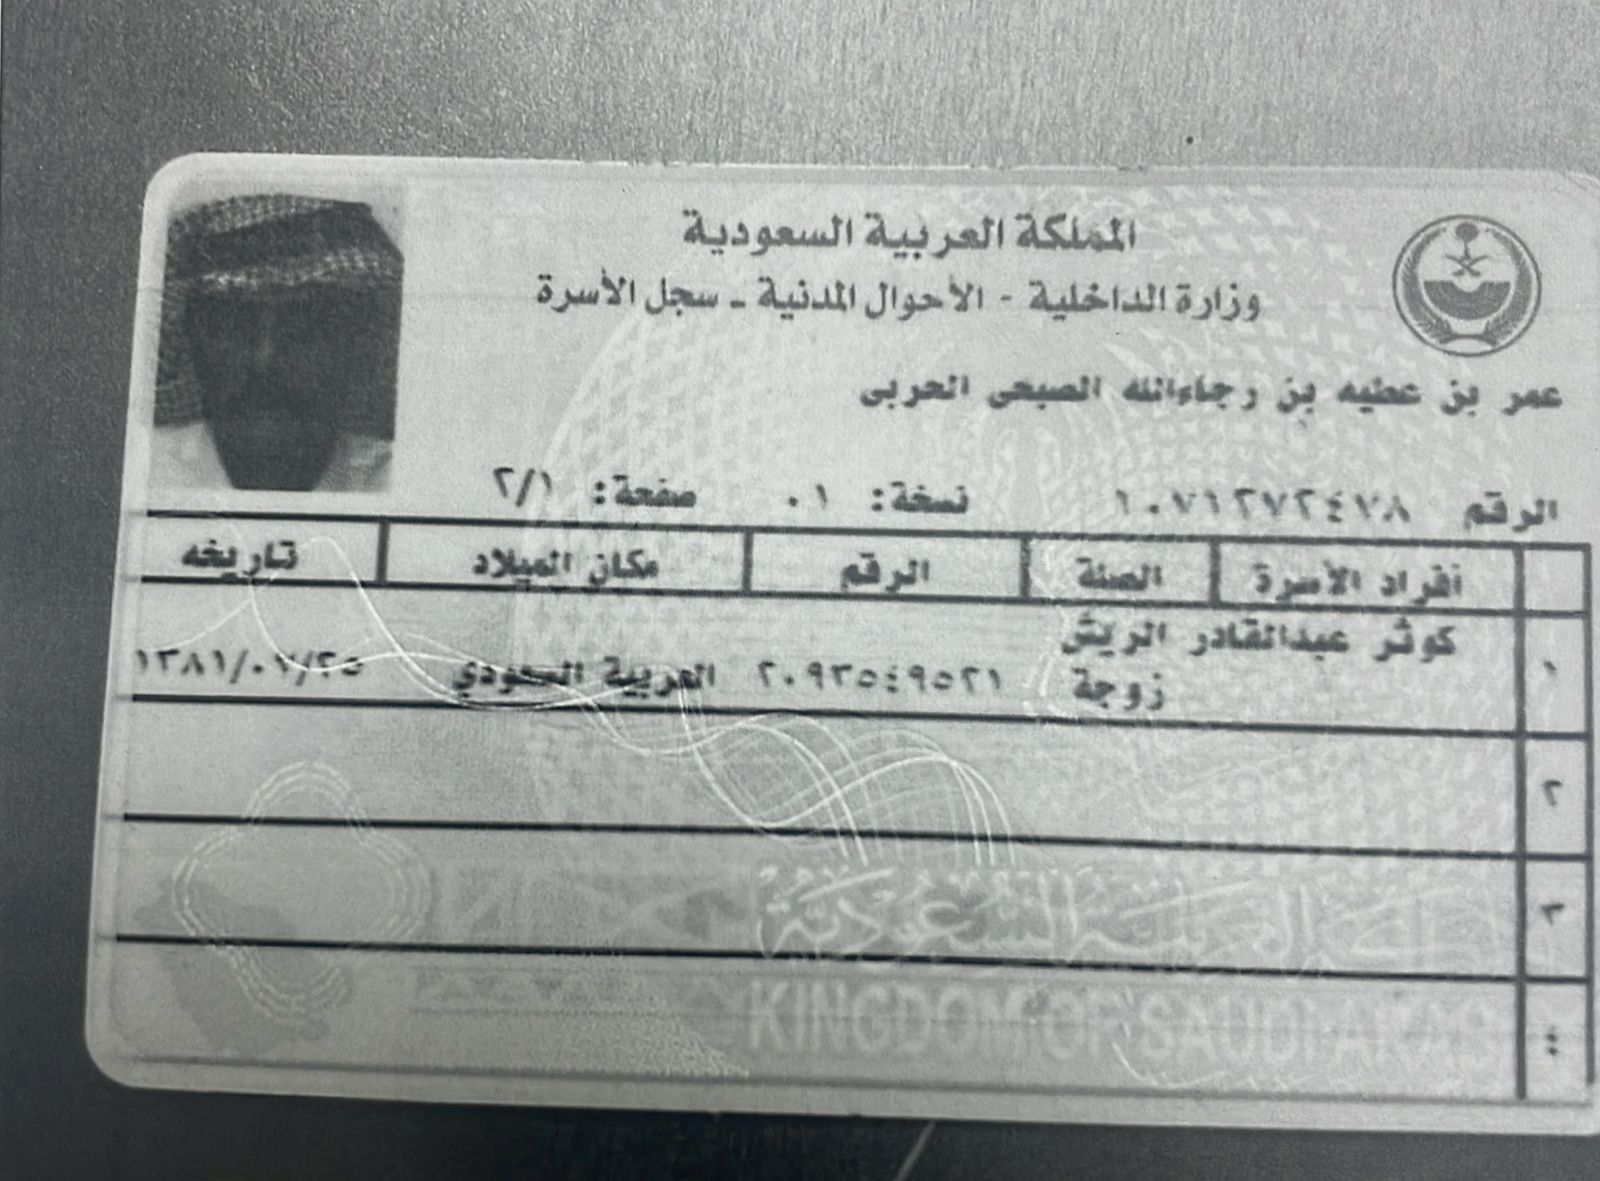 المملكة العربية السعودية
وزارة الداخلية - الأحوال المدنية - سجل الأسرة
عمر بن عطيه بن رجاءالله الصبحى الحربى
الرقم ١٠٧١٢٧٢٤٧٨ نسخة: ٠١ صفحة: ٢/١
أفراد الأسرة الصلة الرقم مكان الميلاد تاريخه
١ كوثر عبدالقادر الريش
زوجة ٢٠٩٣٥٤٩٥٢١ العربية السعودي ١٣٨١/٠٧/٢٥
٢
٣
KINGDOM OF SAUDI ARAB